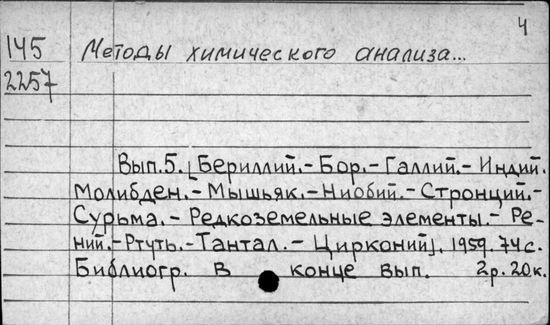 4
145 Методы химического анализа...
2257
Вып.5. [Бериллий.-Бор.-Галлий.-Индий.
Молибден.-Мышьяк.-Ниобий.-Стронций.-
Сурьма.-Редкоземельные элементы.-Ре-
ний.-Ртуть.-Тантал.-Цирконий]. 1959. 74с.
Библиогр. в конце вып. 2р.20к.